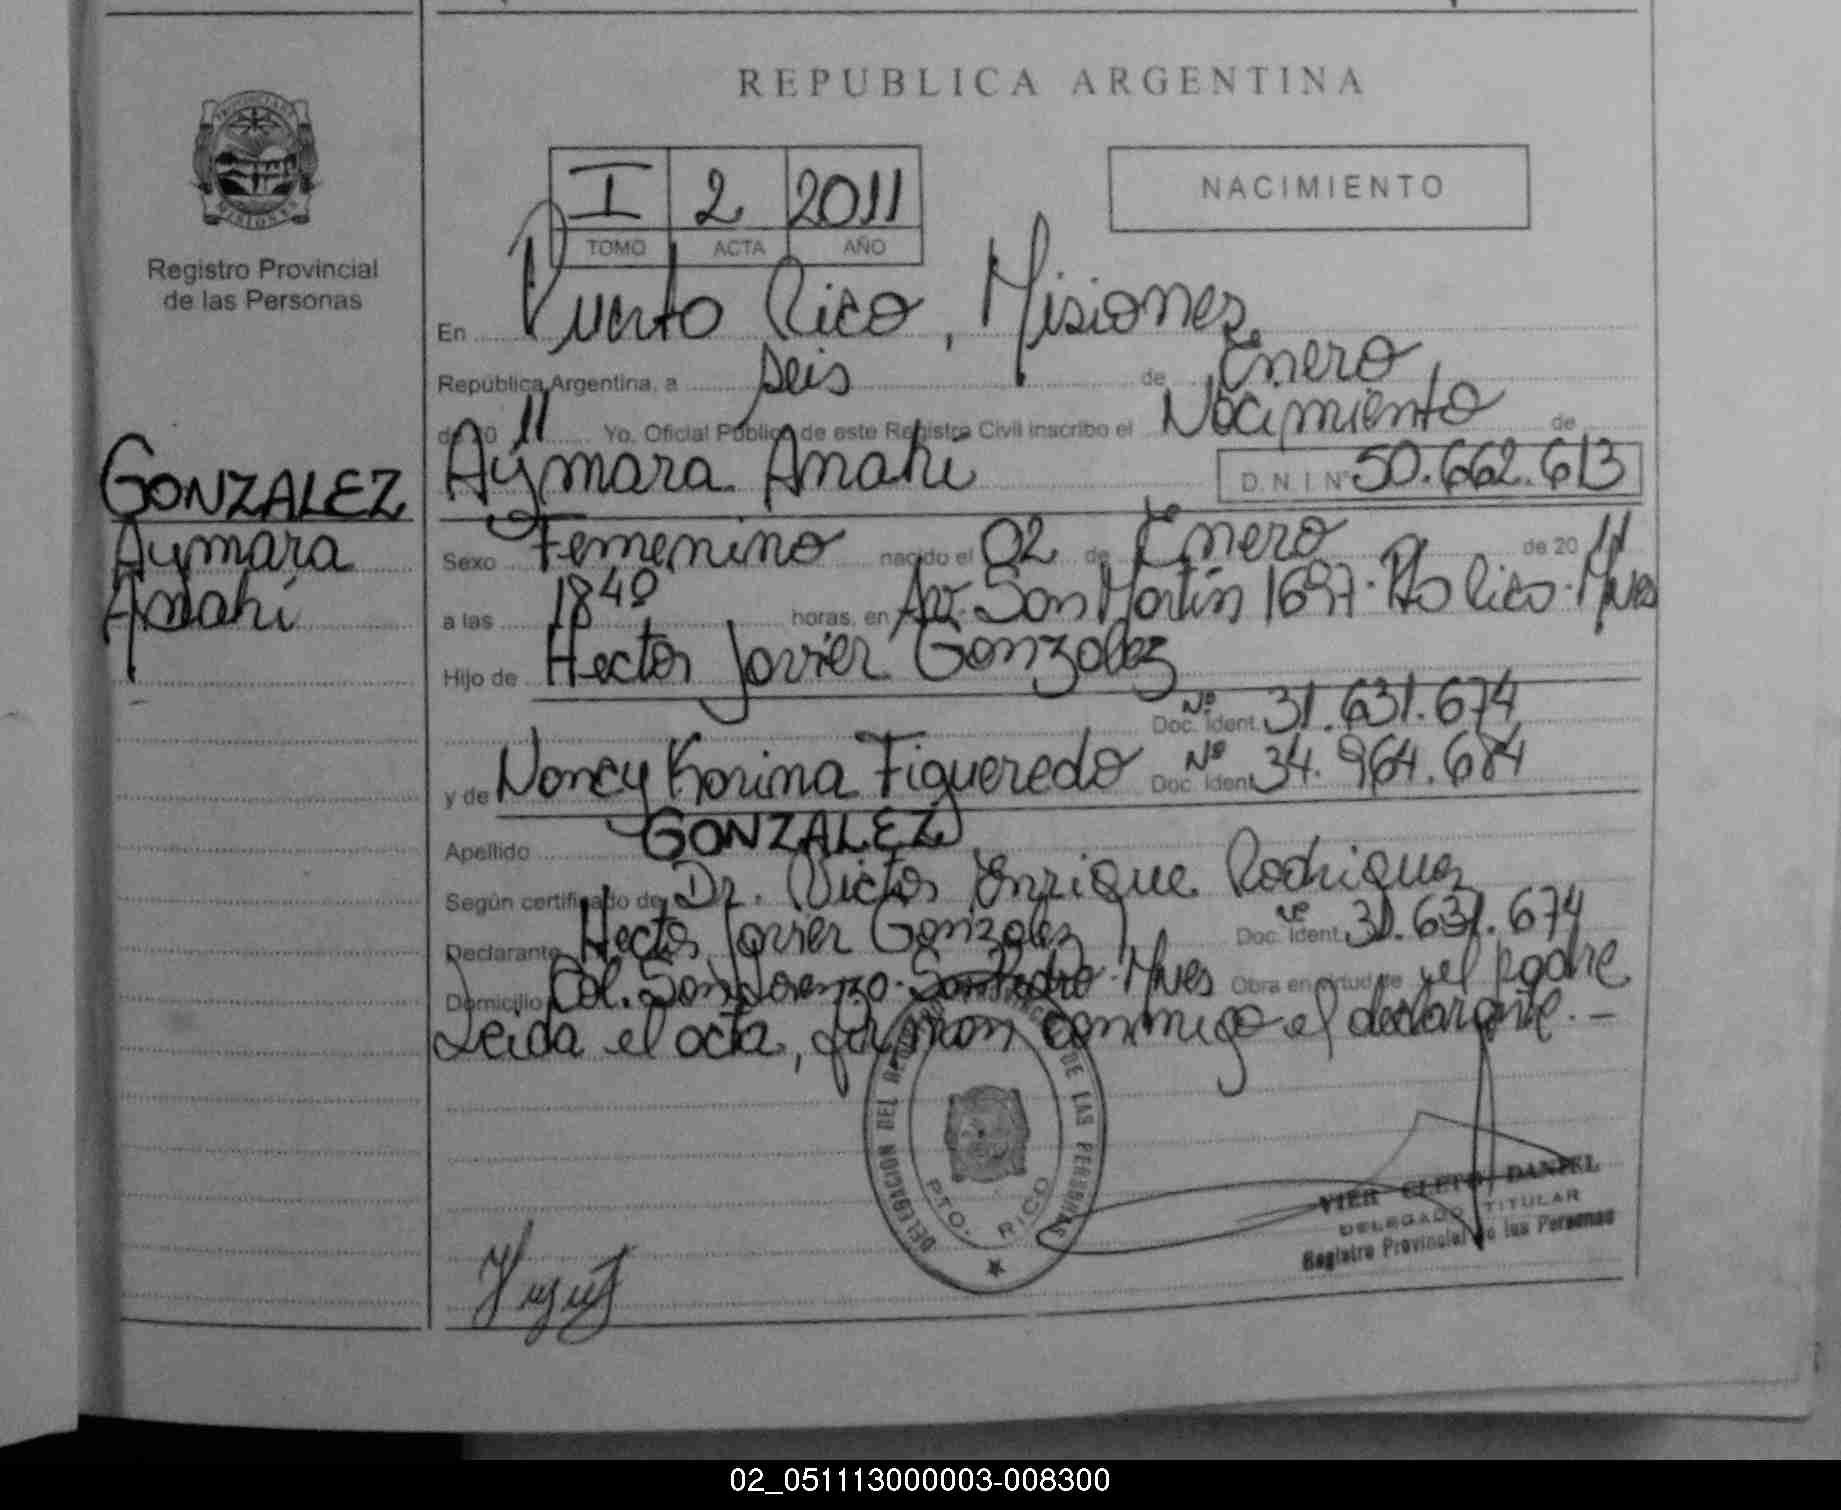 REPUBLICA ARGENTINA
PROVINCIA DE MISIONES
Registro Provincial
de las Personas
I 2 2011
TOMO ACTA AÑO
NACIMIENTO
En Puerto Rico, Misiones
República Argentina, a seis de Enero
de 20 11 Yo, Oficial Público de este Registro Civil inscribo el Nacimiento de
GONZALEZ
Aymara
Anahí
Aymara Anahí D.N.I Nº 50.662.613
Sexo Femenino nacido el 02 de Enero de 20 11
a las 18 40 horas, en Av. San Martín 1697. Pto Rico. Mnes
Hijo de Hector Javier Gonzalez
Nº Doc. Ident. 31.631.674
y de Nancy Karina Figueredo Nº Doc. Ident. 34.964.684
Apellido GONZALEZ
Según certificado de Dr. Victor Enrique Rodriguez
Declarante Hector Javier Gonzalez Doc. Ident. 31.631.674
Domicilio Col. San Lorenzo. San Pedro. Mnes Obra en virtud de el padre
Leida el acta, firman conmigo el declarante. –
DELEGACION DEL DE LAS PERSONAS
PTO. RICO
VIER CLETO DANIEL
DELEGADO TITULAR
Registro Provincial de las Personas
02_051113000003-008300